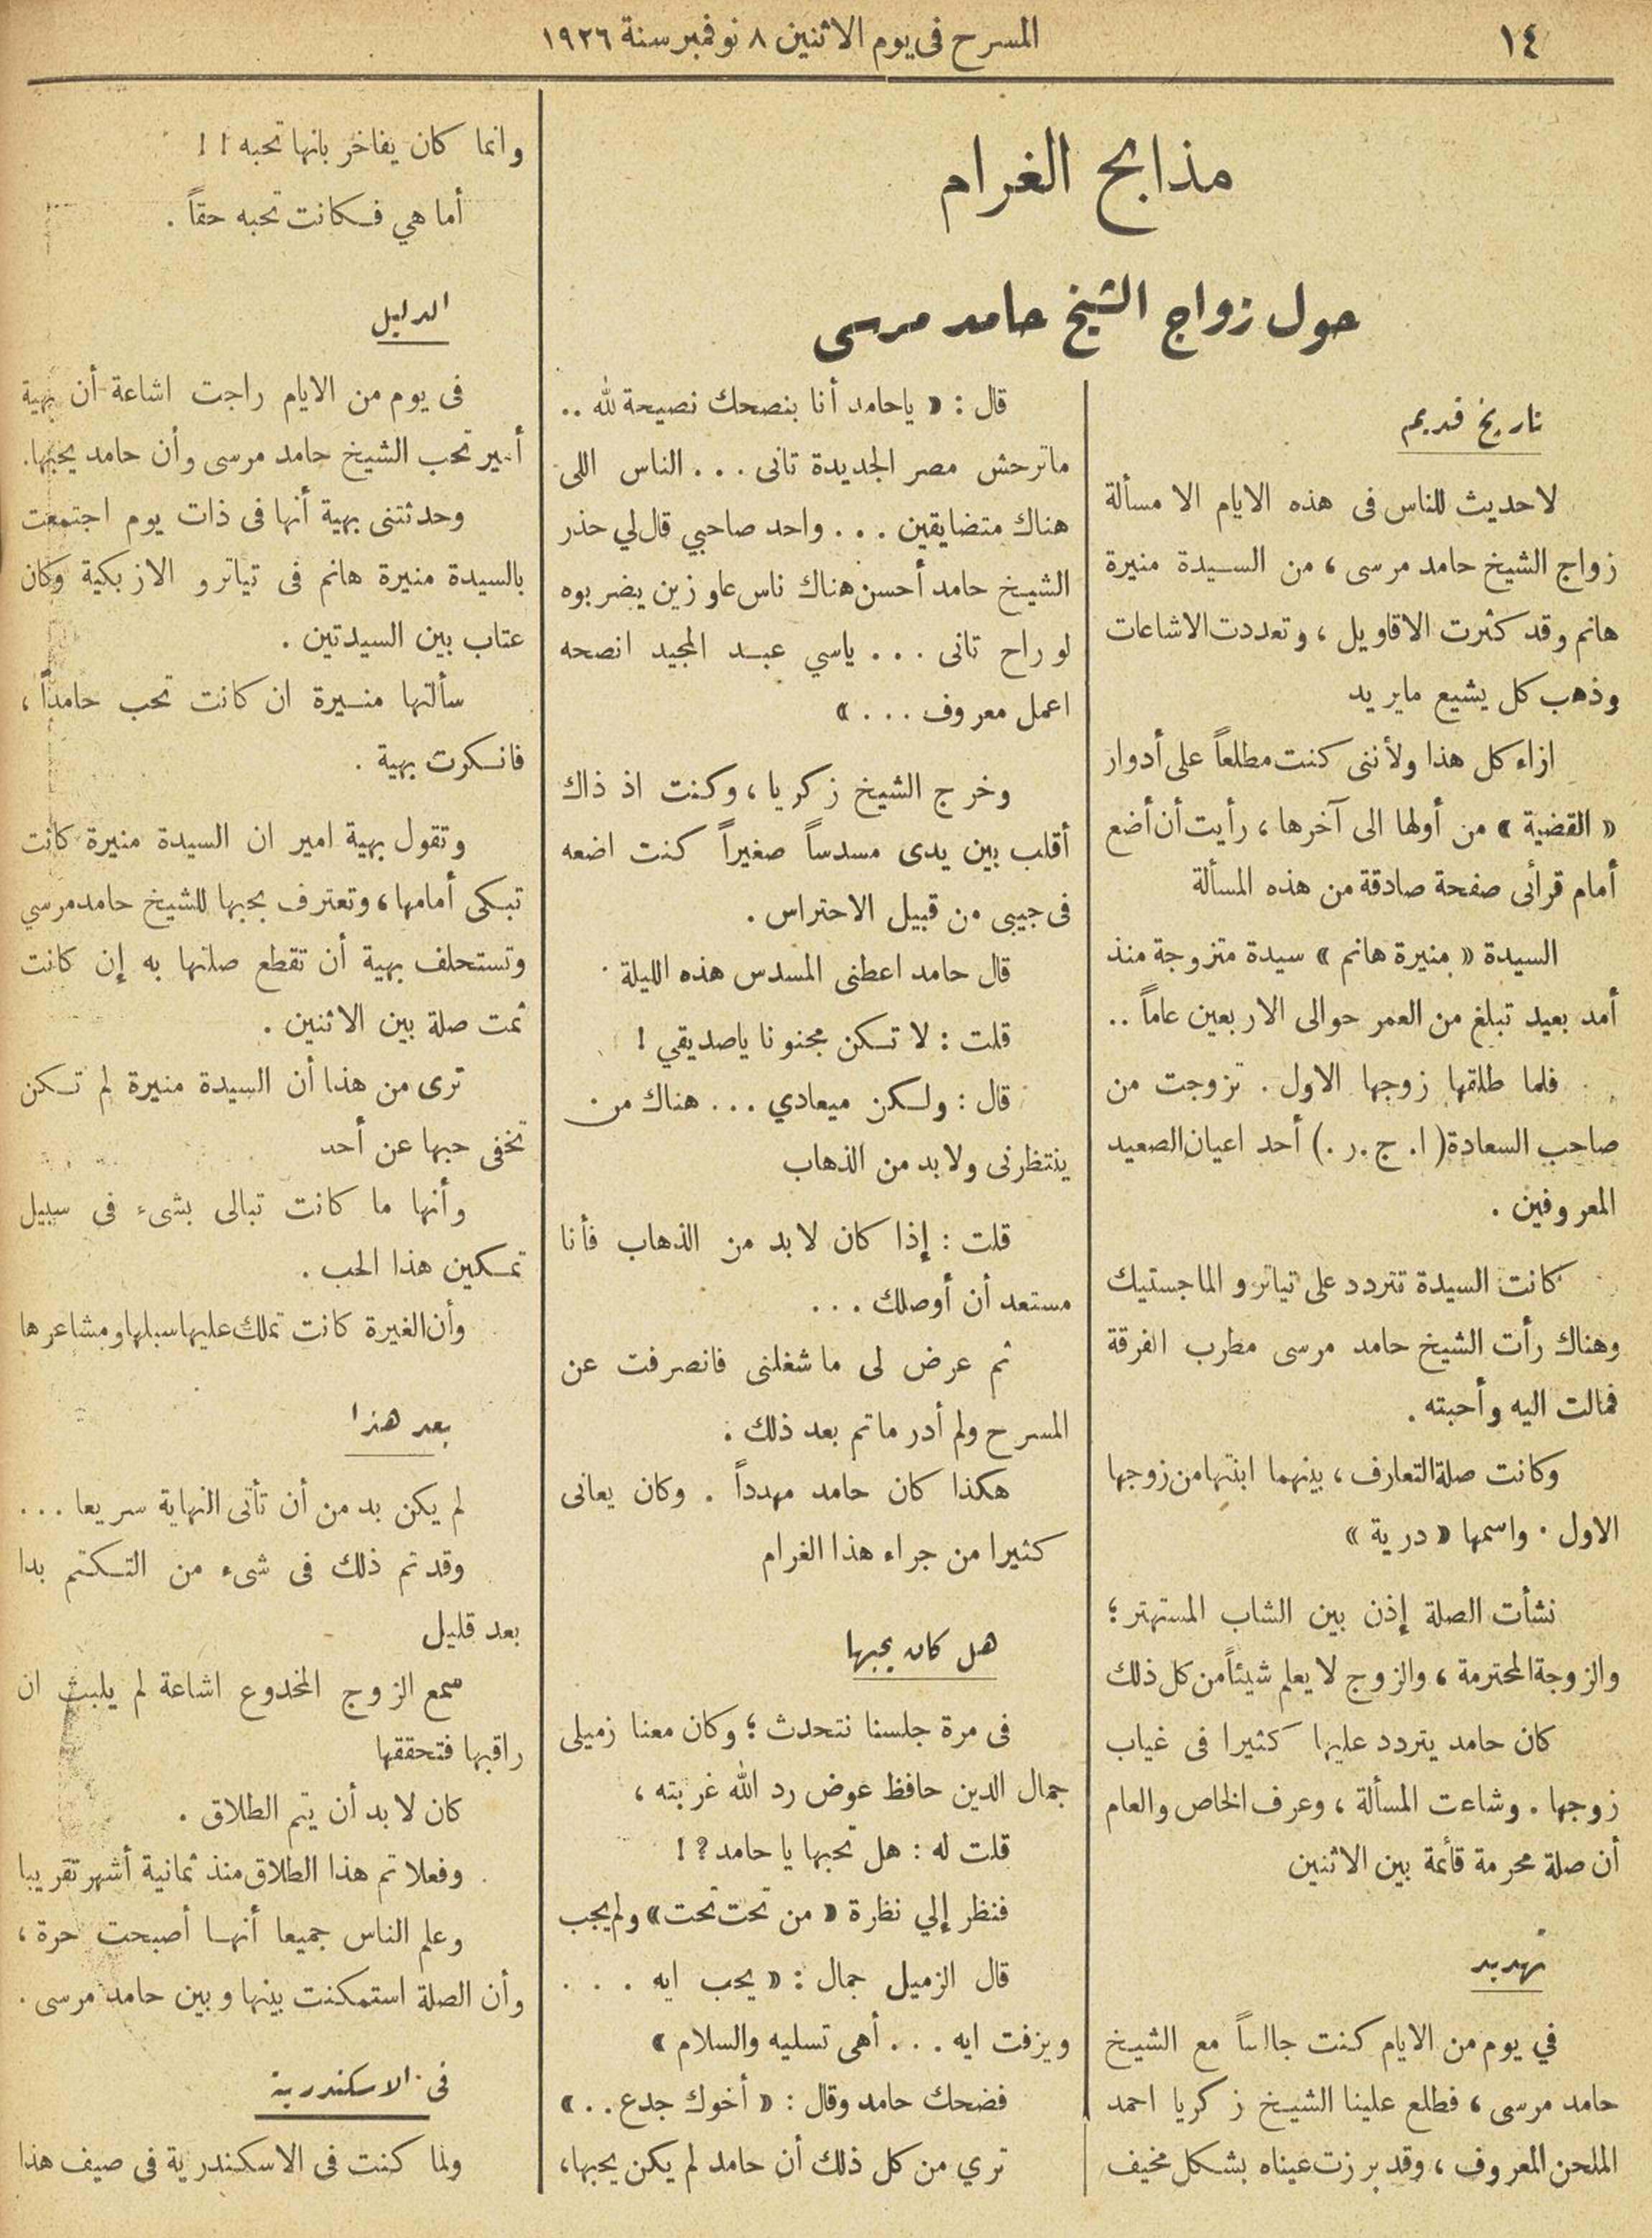 ١٤
المسرح فى يوم الاثنين ٨ نوفمبر سنة ١٩٢٦
مذابح الغرام
حول زواج الشيخ حامد مرسى
تاريخ قديم
لا حديث للناس فى هذه الايام الا مسألة
زواج الشيخ حامد مرسى، من السيدة منيرة
هانم وقد كثرت الاقاويل، وتعددت الاشاعات
وذهب كل يشيع مايريد
ازاء كل هذا ولأننى كنت مطلعاً على أدوار
« القضية » من أولها الى آخرها، رأيت أن أضع
أمام قرائى صفحة صادقة من هذه المسألة
السيدة « منيرة هانم » سيدة متزوجة منذ
أمد بعيد تبلغ من العمر حوالى الاربعين عاماً ..
فلما طلقها زوجها الاول . تزوجت من
صاحب السعادة ( ا. ج. ر. ) أحد اعيان الصعيد
المعروفين .
كانت السيدة تتردد على تياترو الماجستيك
وهناك رأت الشيخ حامد مرسى مطرب الفرقة
فمالت اليه وأحبته .
وكانت صلة التعارف، بينهما ابنتها من زوجها
الاول . واسمها « درية »
نشأت الصلة إذن بين الشاب المستهتر؛
والزوجة المحترمة، والزوج لا يعلم شيئاً من كل ذلك
كان حامد يتردد عليها كثيرا فى غياب
زوجها . وشاعت المسألة، وعرف الخاص والعام
أن صلة محرمة قائمة بين الاثنين
تهديد
في يوم من الايام كنت جالساً مع الشيخ
حامد مرسى، فطلع علينا الشيخ زكريا احمد
الملحن المعروف، وقد برزت عيناه بشكل مخيف
قال : « ياحامد أنا بنصحك نصيحة لله ..
ماترحش مصر الجديدة تانى ... الناس اللى
هناك متضايقين ... واحد صاحبي قال لي حذر
الشيخ حامد أحسن هناك ناس عاوزين يضربوه
لو راح تانى ... ياسي عبد المجيد انصحه
اعمل معروف ... »
وخرج الشيخ زكريا، وكنت اذ ذاك
أقلب بين يدى مسدساً صغيراً كنت اضعه
فى جيبى من قبيل الاحتراس .
قال حامد اعطنى المسدس هذه الليلة .
قلت : لا تكن مجنونا ياصديقي !
قال : ولكن ميعادي ... هناك من
ينتظرنى ولا بد من الذهاب
قلت : إذا كان لا بد من الذهاب فأنا
مستعد أن أوصلك ...
ثم عرض لى ما شغلنى فانصرفت عن
المسرح ولم أدر ماتم بعد ذلك .
هكذا كان حامد مهدداً . وكان يعانى
كثيرا من جراء هذا الغرام
هل كان يحبها
فى مرة جلسنا نتحدث؛ وكان معنا زميلى
جمال الدين حافظ عوض رد الله غربته،
قلت له : هل تحبها يا حامد ؟ !
فنظر إلي نظرة « من تحت تحت » ولم يجب
قال الزميل جمال : « يحب ايه ...
ويزفت ايه ... أهى تسليه والسلام »
فضحك حامد وقال : « أخوك جدع .. »
تري من كل ذلك أن حامد لم يكن يحبها،
وانما كان يفاخر بانها تحبه ! !
أما هي فكانت تحبه حقاً .
الدليل
فى يوم من الايام راجت اشاعة أن بهية
أمير تحب الشيخ حامد مرسى وأن حامد يحبها.
وحدثتنى بهية أنها فى ذات يوم اجتمعت
بالسيدة منيرة هانم فى تياترو الازبكية وكان
عتاب بين السيدتين .
سألتها منيرة ان كانت تحب حامداً،
فانكرت بهية .
وتقول بهية امير ان السيدة منيرة كانت
تبكى أمامها، وتعترف بحبها للشيخ حامد مرسي
وتستحلف بهية أن تقطع صلتها به إن كانت
ثمت صلة بين الاثنين .
ترى من هذا أن السيدة منيرة لم تكن
تخفى حبها عن أحد
وأنها ما كانت تبالى بشىء فى سبيل
تمكين هذا الحب .
وأن الغيرة كانت تملك عليها سبلها ومشاعرها
بعد هذا
لم يكن بد من أن تأتى النهاية سريعا ...
وقد تم ذلك فى شىء من التكتم بدا
بعد قليل
سمع الزوج المخدوع اشاعة لم يلبث ان
راقبها فتحققها
كان لا بد أن يتم الطلاق .
وفعلا تم هذا الطلاق منذ ثمانية أشهر تقريبا
وعلم الناس جميعا أنها أصبحت حرة،
وأن الصلة استمكنت بينها وبين حامد مرسى .
فى الاسكندرية
ولما كنت فى الاسكندرية فى صيف هذا